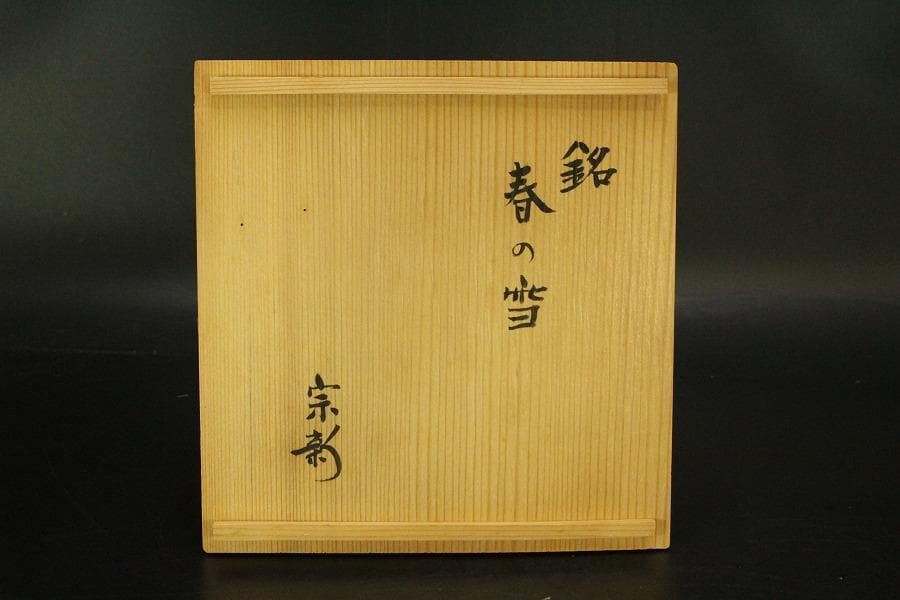 銘
春の雪
宗彰